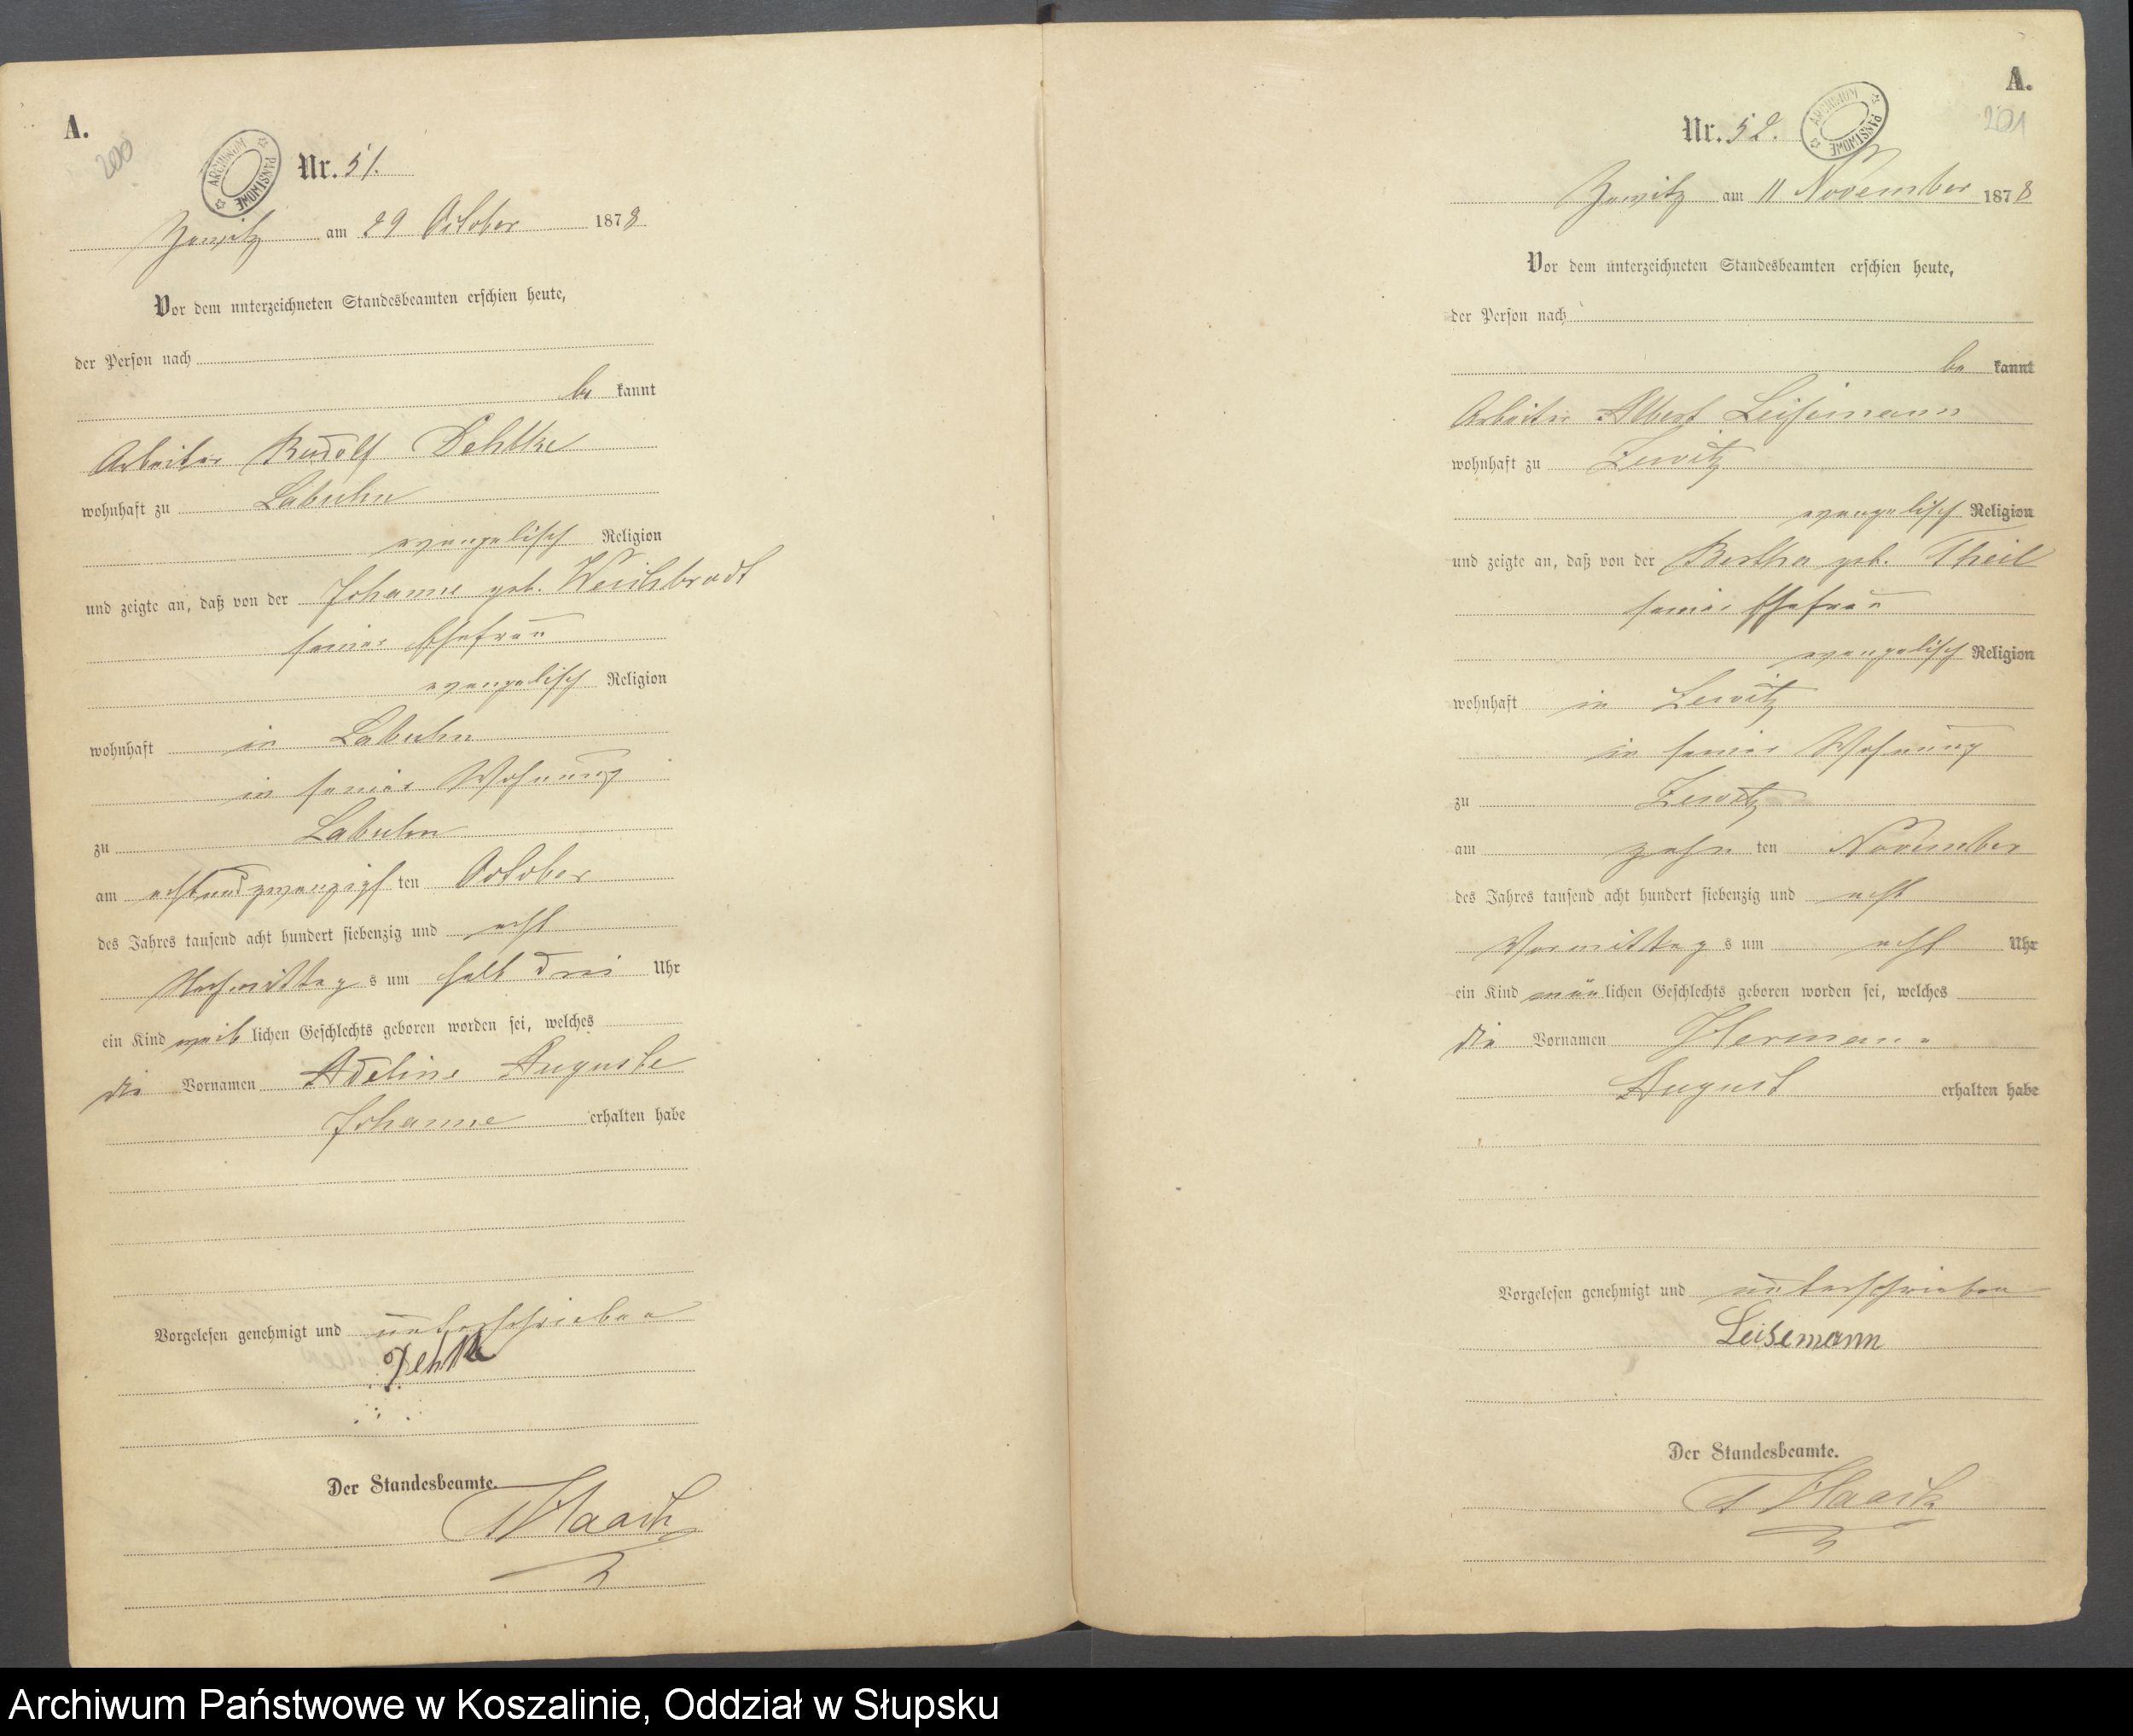 A.
200
ARCHIWUM PAŃSTWOWE
Nr. 51.
am 29 October 1878
Vor dem unterzeichneten Standesbeamten erschien heute,
der Person nach
be kannt
Arbeiter Rudolf Dehlke
wohnhaft zu Labuhn
evangelisch Religion
und zeigte an, daß von der Johanne geb. Weichbrodt
seiner Ehefrau
evangelisch Religion
wohnhaft in Labuhn
in seiner Wohnung
zu Labuhn
am achtundzwanzigsten October
des Jahres tausend acht hundert siebenzig und acht
Nachmittags um halb drei Uhr
ein Kind weiblichen Geschlechts geboren worden sei, welches
die Vornamen Adeline Auguste
Johanne erhalten habe
Vorgelesen genehmigt und unterschrieben
Der Standesbeamte.
A.
201
ARCHIWUM PAŃSTWOWE
Nr. 52.
Zewitz am 11 November 1878
Vor dem unterzeichneten Standesbeamten erschien heute,
der Person nach
be kannt
Arbeiter Albert Leisemann
wohnhaft zu Zewitz
evangelisch Religion
und zeigte an, daß von der Bertha geb. Theil
seiner Ehefrau
evangelisch Religion
wohnhaft in Zewitz
in seiner Wohnung
zu Zewitz
am zehn ten November
des Jahres tausend acht hundert siebenzig und acht
Vormittags um acht Uhr
ein Kind männlichen Geschlechts geboren worden sei, welches
die Vornamen Hermann
August erhalten habe
Vorgelesen genehmigt und unterschrieben
Leisemann
Der Standesbeamte.
Archiwum Państwowe w Koszalinie, Oddział w Słupsku